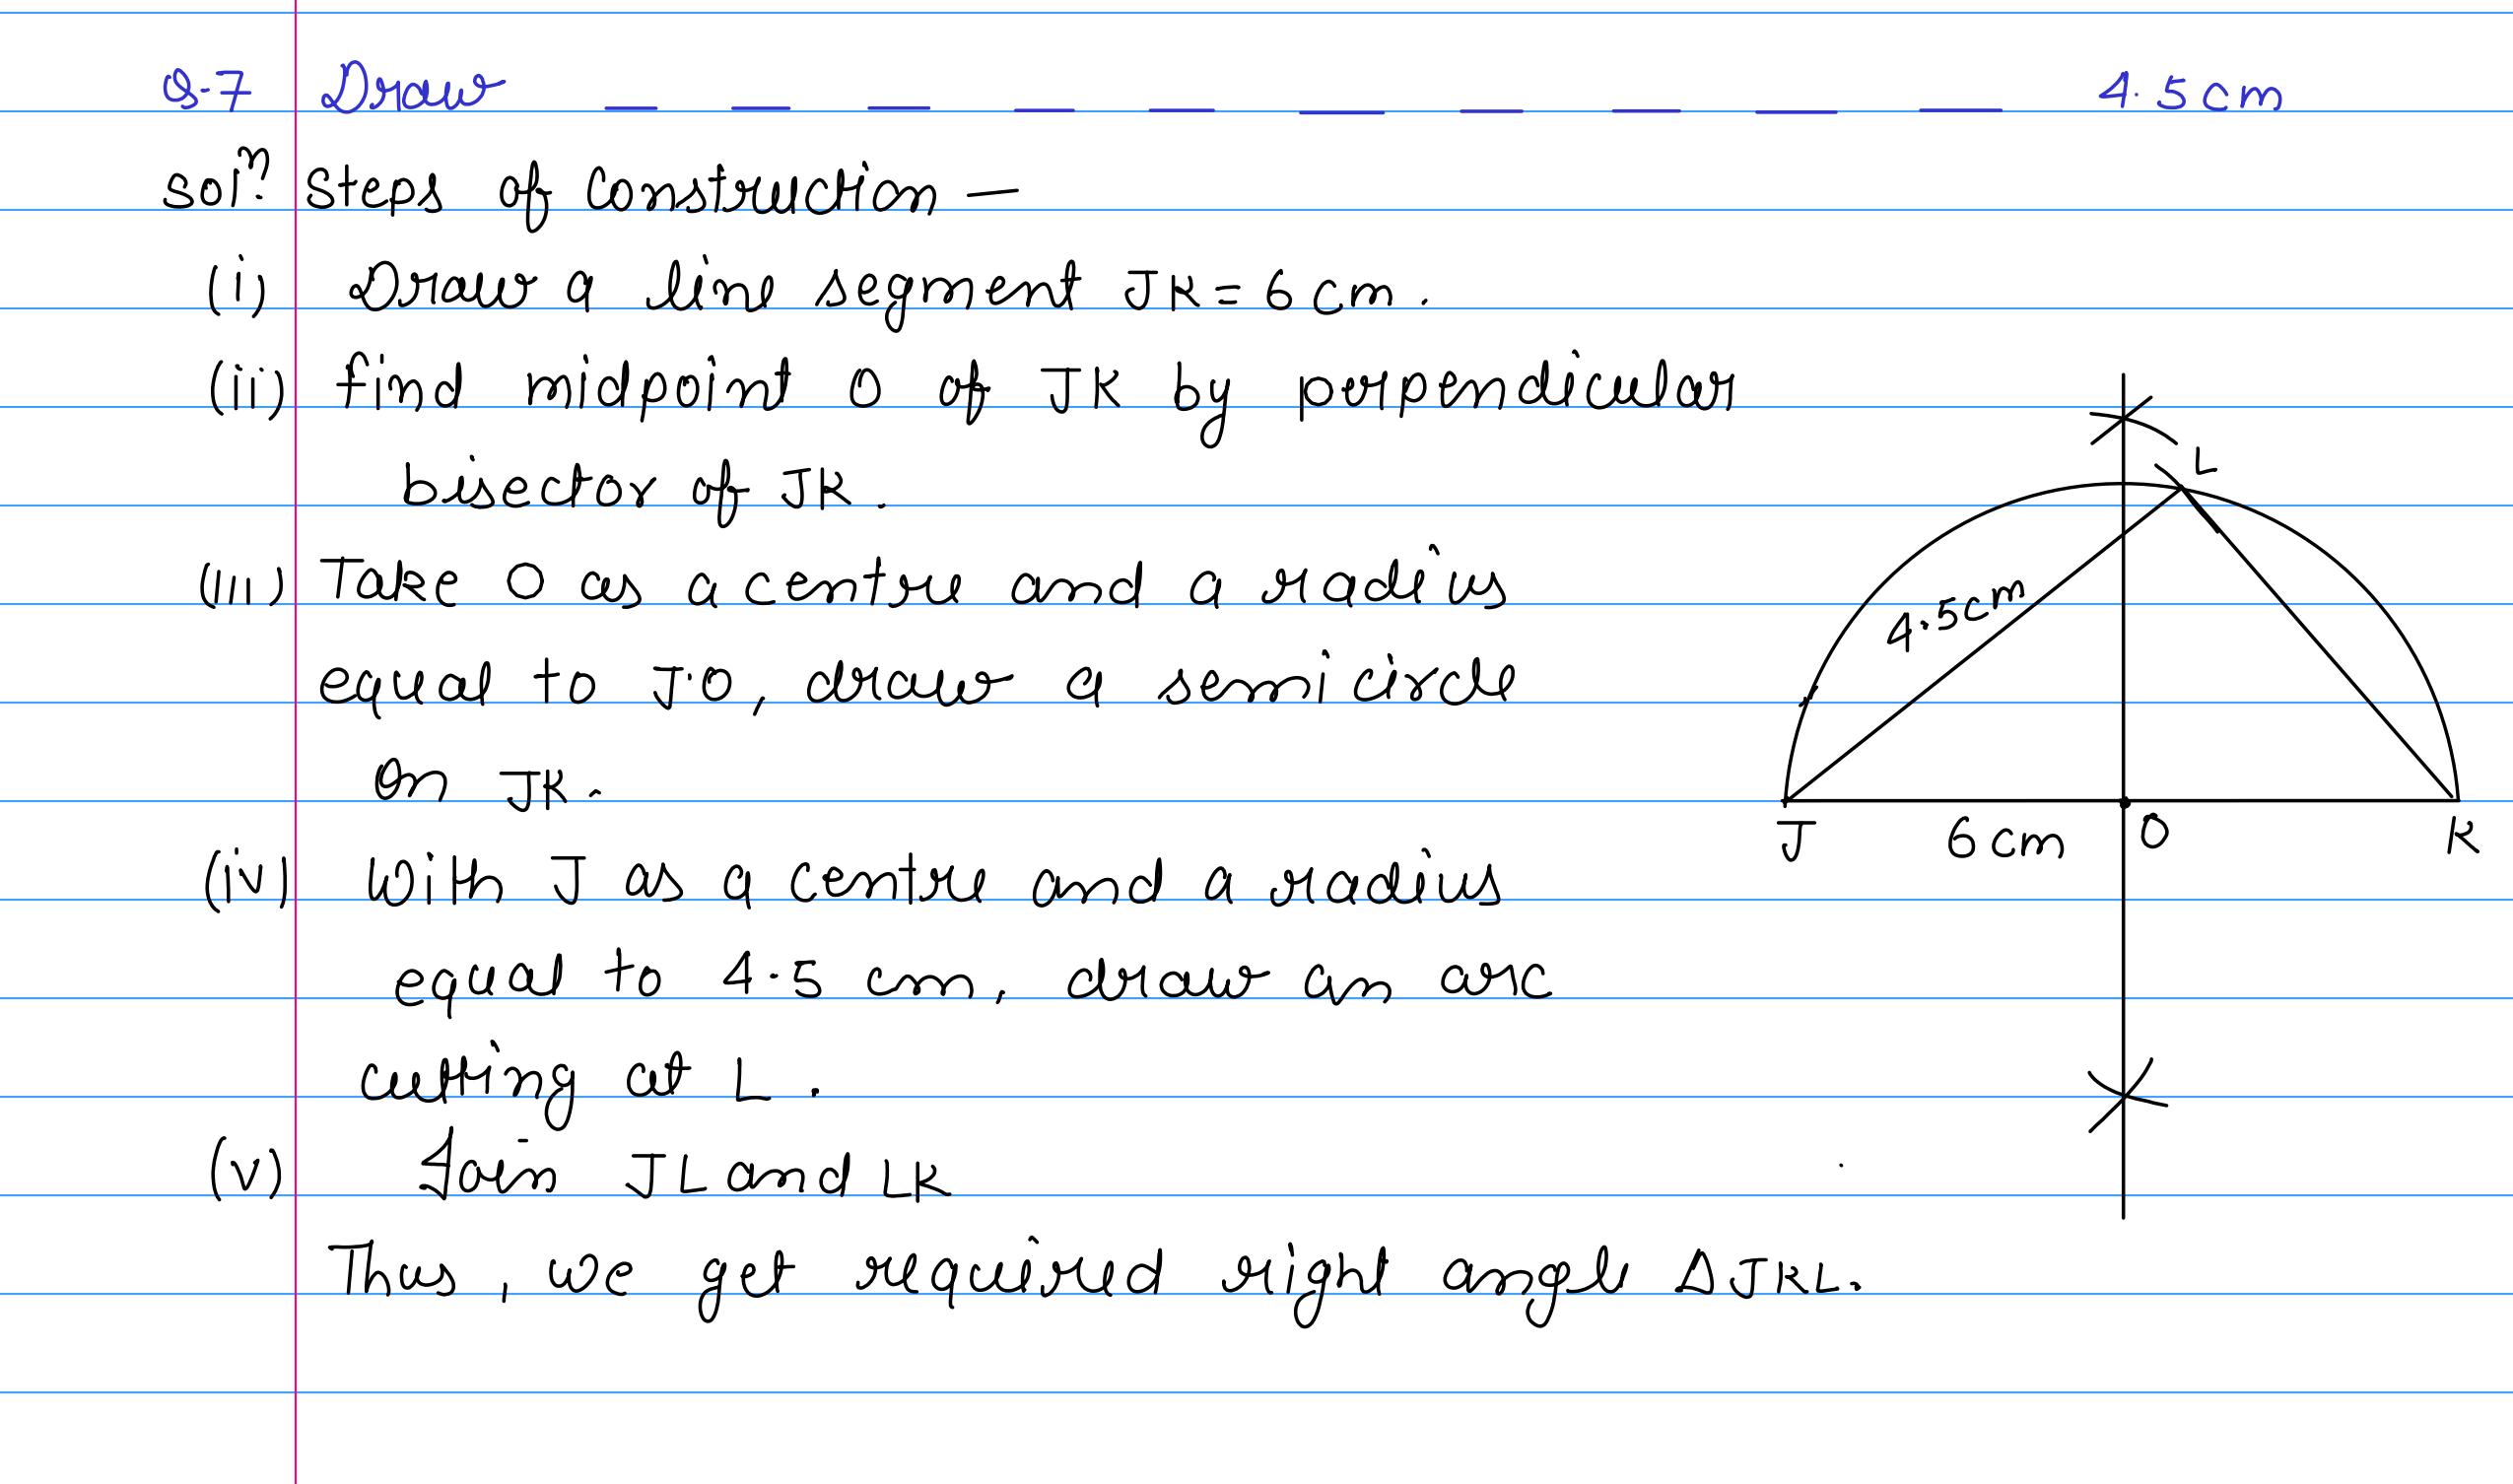 Q-7 Draw _ _ _ _ _ _ _ _ _ _ 4.5cm
Solⁿ. Steps of Construction —
(i) Draw a line segment JK = 6 cm.
(ii) find midpoint O of JK by perpendicular
bisector of JK.
(iii) Take O as a centre and a radius
equal to JO, draw a semicircle
on JK.
(iv) With J as a centre and a radius
equal to 4.5 cm, draw an arc
cutting at L.
(v) Join JL and LK
Thus, we get required right angle ΔJKL.
L
4.5cm
J 6 cm O K